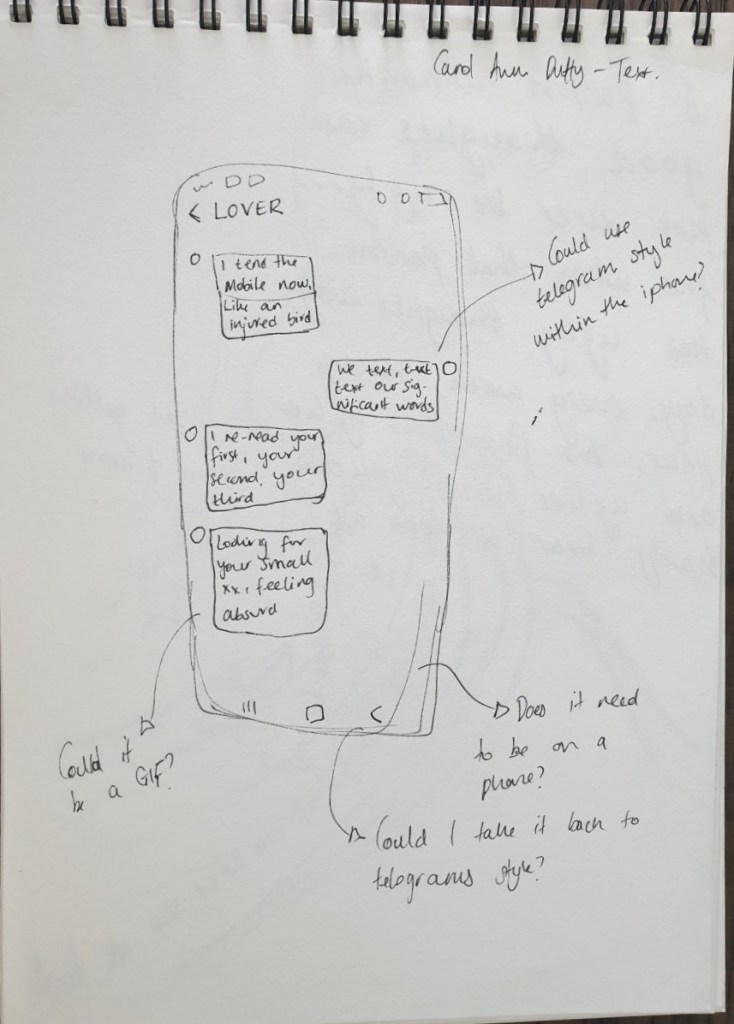 Carol Ann Duffy - Text.
< LOVER
I tend the
Mobile now,
Like an
injured bird
We text, text
text our sig-
nificant words
I re-read your
first, your
second, your
third
Looking for
your small
xx, feeling
absurd
Could use
telegram style
within the iphone?
Does it need
to be on a
phone?
Could it
be a GIF?
Could I take it back to
telegrams style?